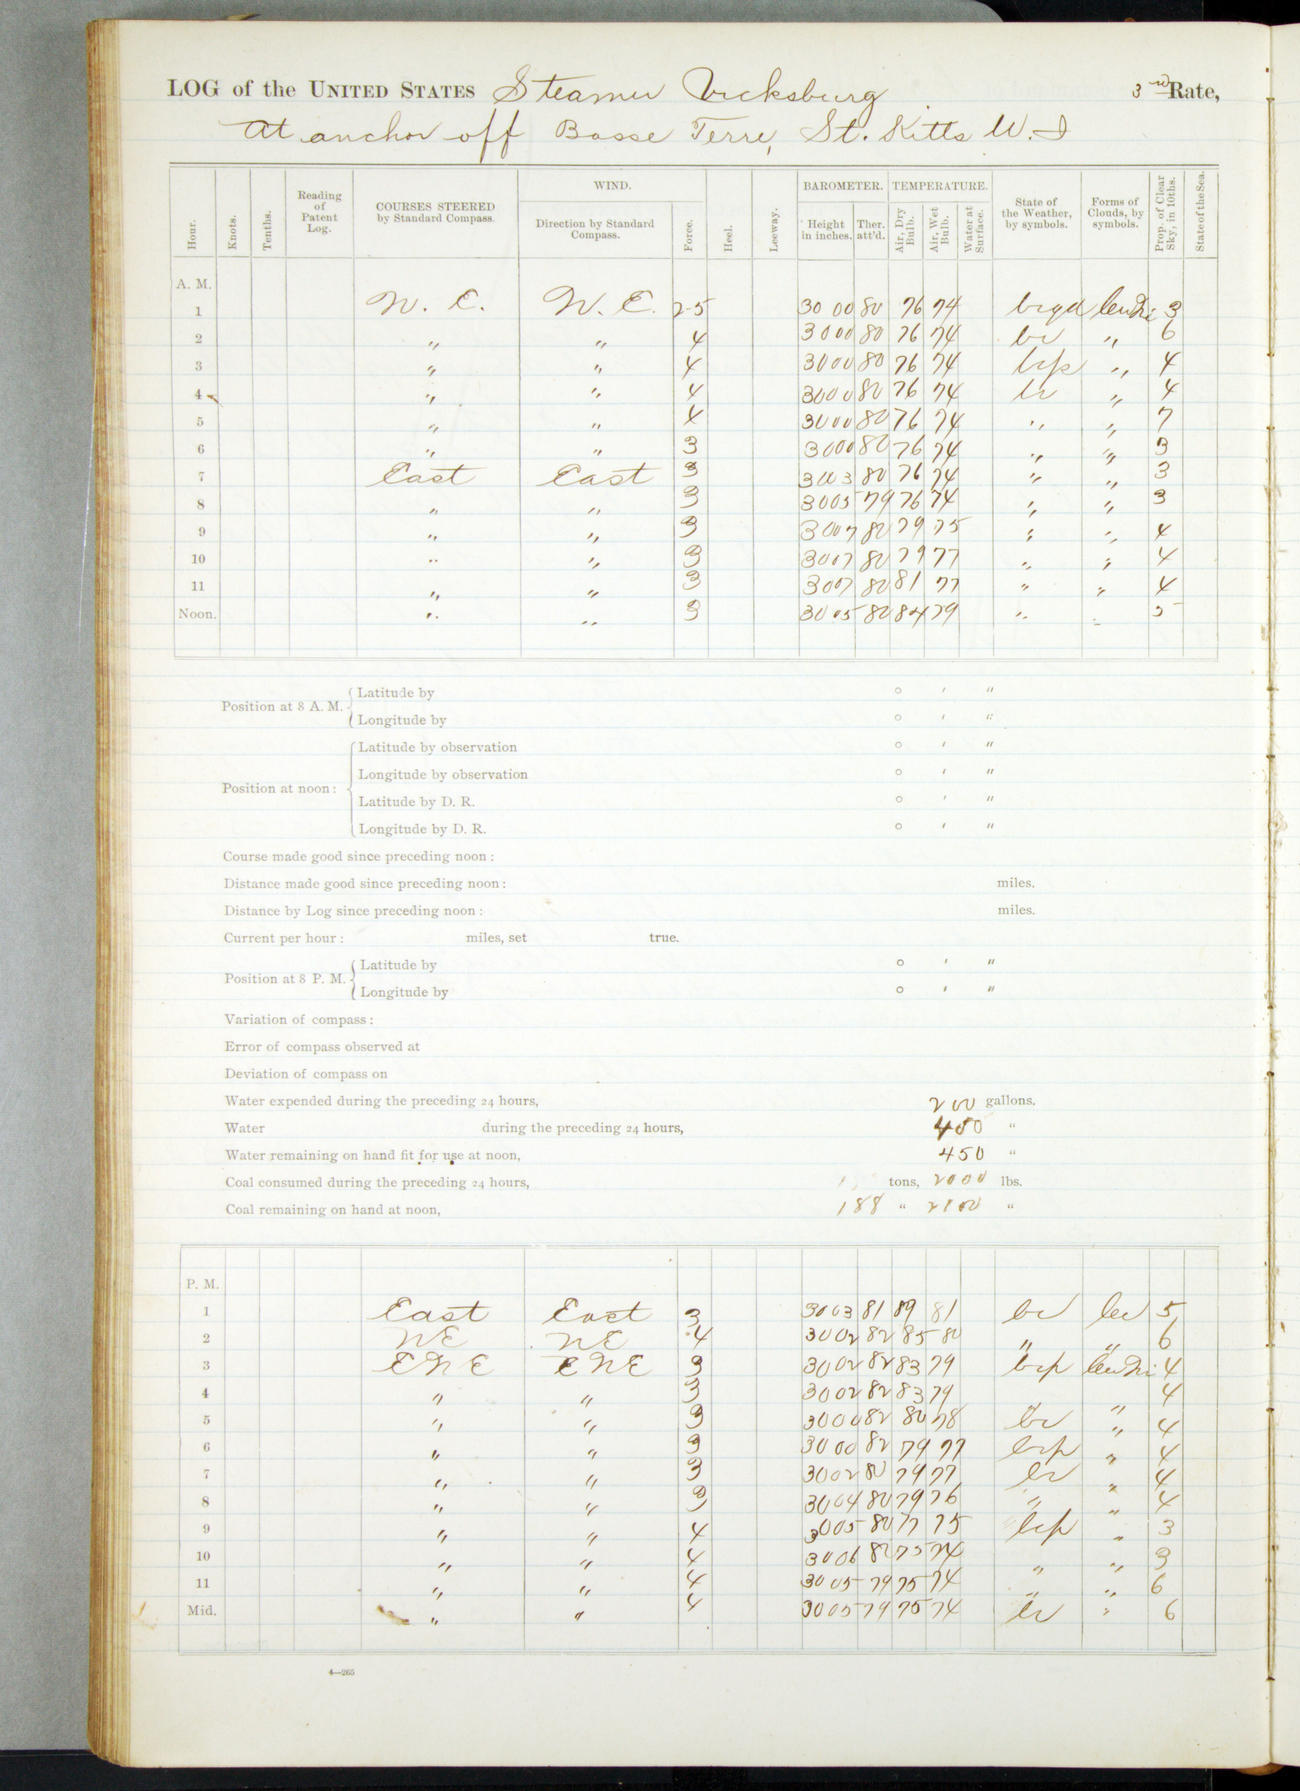 LOG of the UNITED STATES Steamer Vicksburg 3rd Rate,
At anchor off Basse Terre, St. Kitts W. I
Hour. Knots. Tenths. Reading of Patent Log. COURSES STEERED by Standard Compass. WIND. Direction by Standard Compass. Force. Heel. Leeway. BAROMETER. Height in inches. Ther. att'd. TEMPERATURE. Air, Dry Bulb. Air, Wet Bulb. Water at Surface. State of the Weather, by symbols. Forms of Clouds, by symbols. Prop. of Clear Sky, in 10ths. State of the Sea.
A. M.
1 N. E. N. E. 2-5 30 00 80 76 74 bcqd 3
2 " " 4 30 00 80 76 74 bc " 6
3 " " 4 30 00 80 76 74 bcp " 4
4 " " 4 30 00 80 76 74 bc " 4
5 " " 4 30 00 80 76 74 " " 7
6 " " 3 30 00 80 76 74 " " 3
7 East East 3 30 03 80 76 74 " " 3
8 " " 3 30 05 79 76 74 " " 3
9 " " 3 30 07 80 79 75 " " 4
10 " " 3 30 07 80 79 77 " " 4
11 " " 3 30 07 80 81 77 " " 4
Noon. " " 3 30 05 80 84 79 " " 5
Position at 8 A. M. Latitude by ° ' "
Longitude by ° ' "
Position at noon: Latitude by observation ° ' "
Longitude by observation ° ' "
Latitude by D. R. ° ' "
Longitude by D. R. ° ' "
Course made good since preceding noon:
Distance made good since preceding noon: miles.
Distance by Log since preceding noon: miles.
Current per hour: miles, set true.
Position at 8 P. M. Latitude by ° ' "
Longitude by ° ' "
Variation of compass:
Error of compass observed at
Deviation of compass on
Water expended during the preceding 24 hours, 200 gallons.
Water during the preceding 24 hours, "
Water remaining on hand fit for use at noon, 450 "
Coal consumed during the preceding 24 hours, tons, 2000 lbs.
Coal remaining on hand at noon, 188 " "
P. M.
1 East East 3 30 03 81 89 81 bc cu 5
2 NE NE 4 30 02 82 85 80 " " 6
3 ENE ENE 3 30 02 82 83 79 bcp 4
4 " " 3 30 02 82 83 79 " " 4
5 " " 3 30 00 82 80 78 bc " 4
6 " " 3 30 00 82 79 77 bcp " 4
7 " " 3 30 02 80 79 77 bc " 4
8 " " 3 30 04 80 79 76 " " 4
9 " " 4 30 05 80 77 75 bcp " 3
10 " " 4 30 06 80 75 74 " " 3
11 " " 4 30 05 79 75 74 " " 6
Mid. " " 4 30 05 79 75 74 bc " 6
4—265